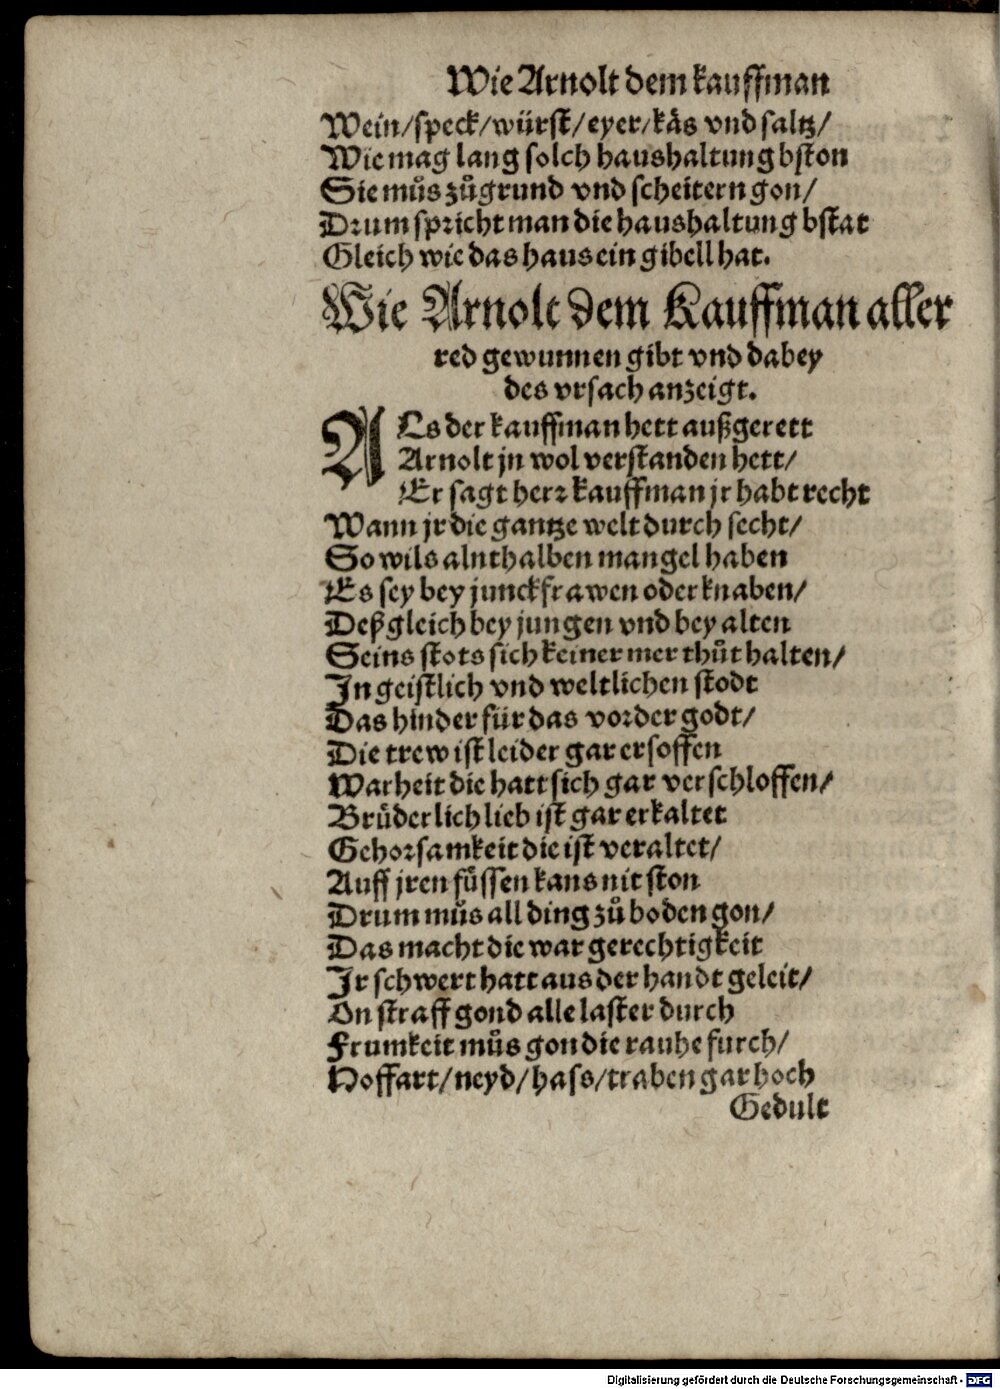 Wie Arnolt dem kauffman
Wein/speck/würst/eyer/käs vnd saltz/
Wie mag lang solch haushaltung bston
Sie můs zůgrund vnd scheitern gon/
Drum spricht man die haushaltung bstat
Gleich wie das haus ein gibell hat.
Wie Arnolt dem Kauffman aller
red gewunnen gibt vnd dabey
des vrsach anzeigt.
ALs der kauffman hett außgerett
Arnolt jn wol verstanden hett/
Er sagt herr kauffman jr habt recht
Wann jr die gantze welt durch secht/
So wils alnthalben mangel haben
Es sey bey junckfrawen oder knaben/
Deßgleich bey jungen vnd bey alten
Seins stots sich keiner mer thůt halten/
In geistlich vnd weltlichen stodt
Das hinder für das vorder godt/
Die trew ist leider gar ersoffen
Warheit die hatt sich gar verschloffen/
Brüderlich lieb ist gar erkaltet
Gehorsamkeit die ist veraltet/
Auff jren füssen kans nit ston
Drum můs all ding zů boden gon/
Das macht die war gerechtigkeit
Ir schwert hatt aus der handt geleit/
On straff gond alle laster durch
Frumkeit můs gon die rauhe furch/
Hoffart/neyd/hass/traben gar hoch
Gedult
Digitalisierung gefördert durch die Deutsche Forschungsgemeinschaft - DFG